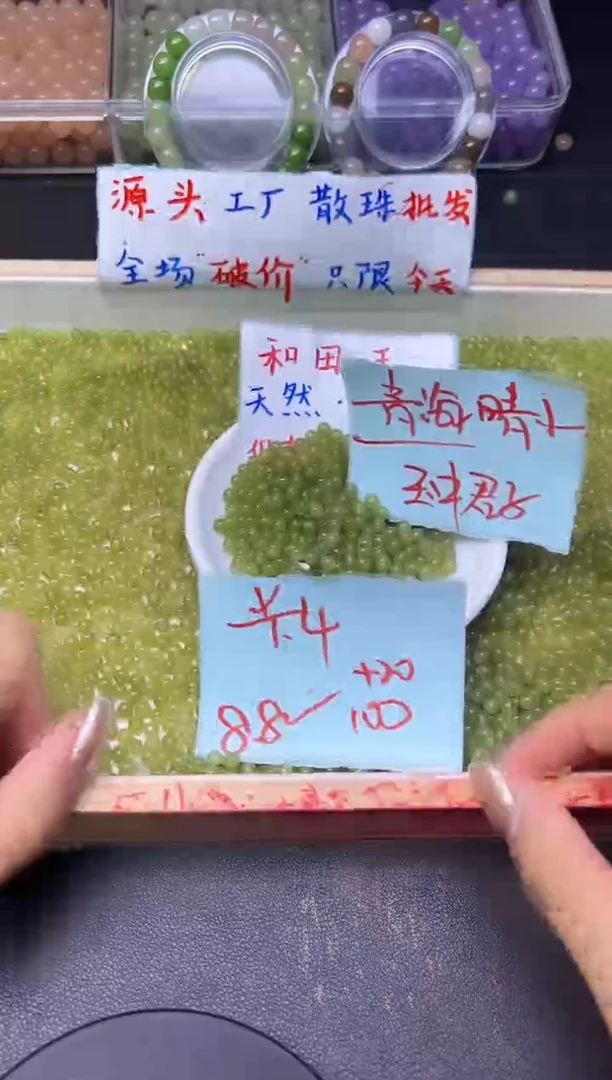 源头工厂散珠批发
全场"破价"只限今天
和田玉
天然·
青海晴水
玉中君子
关4
+20
8.8 100